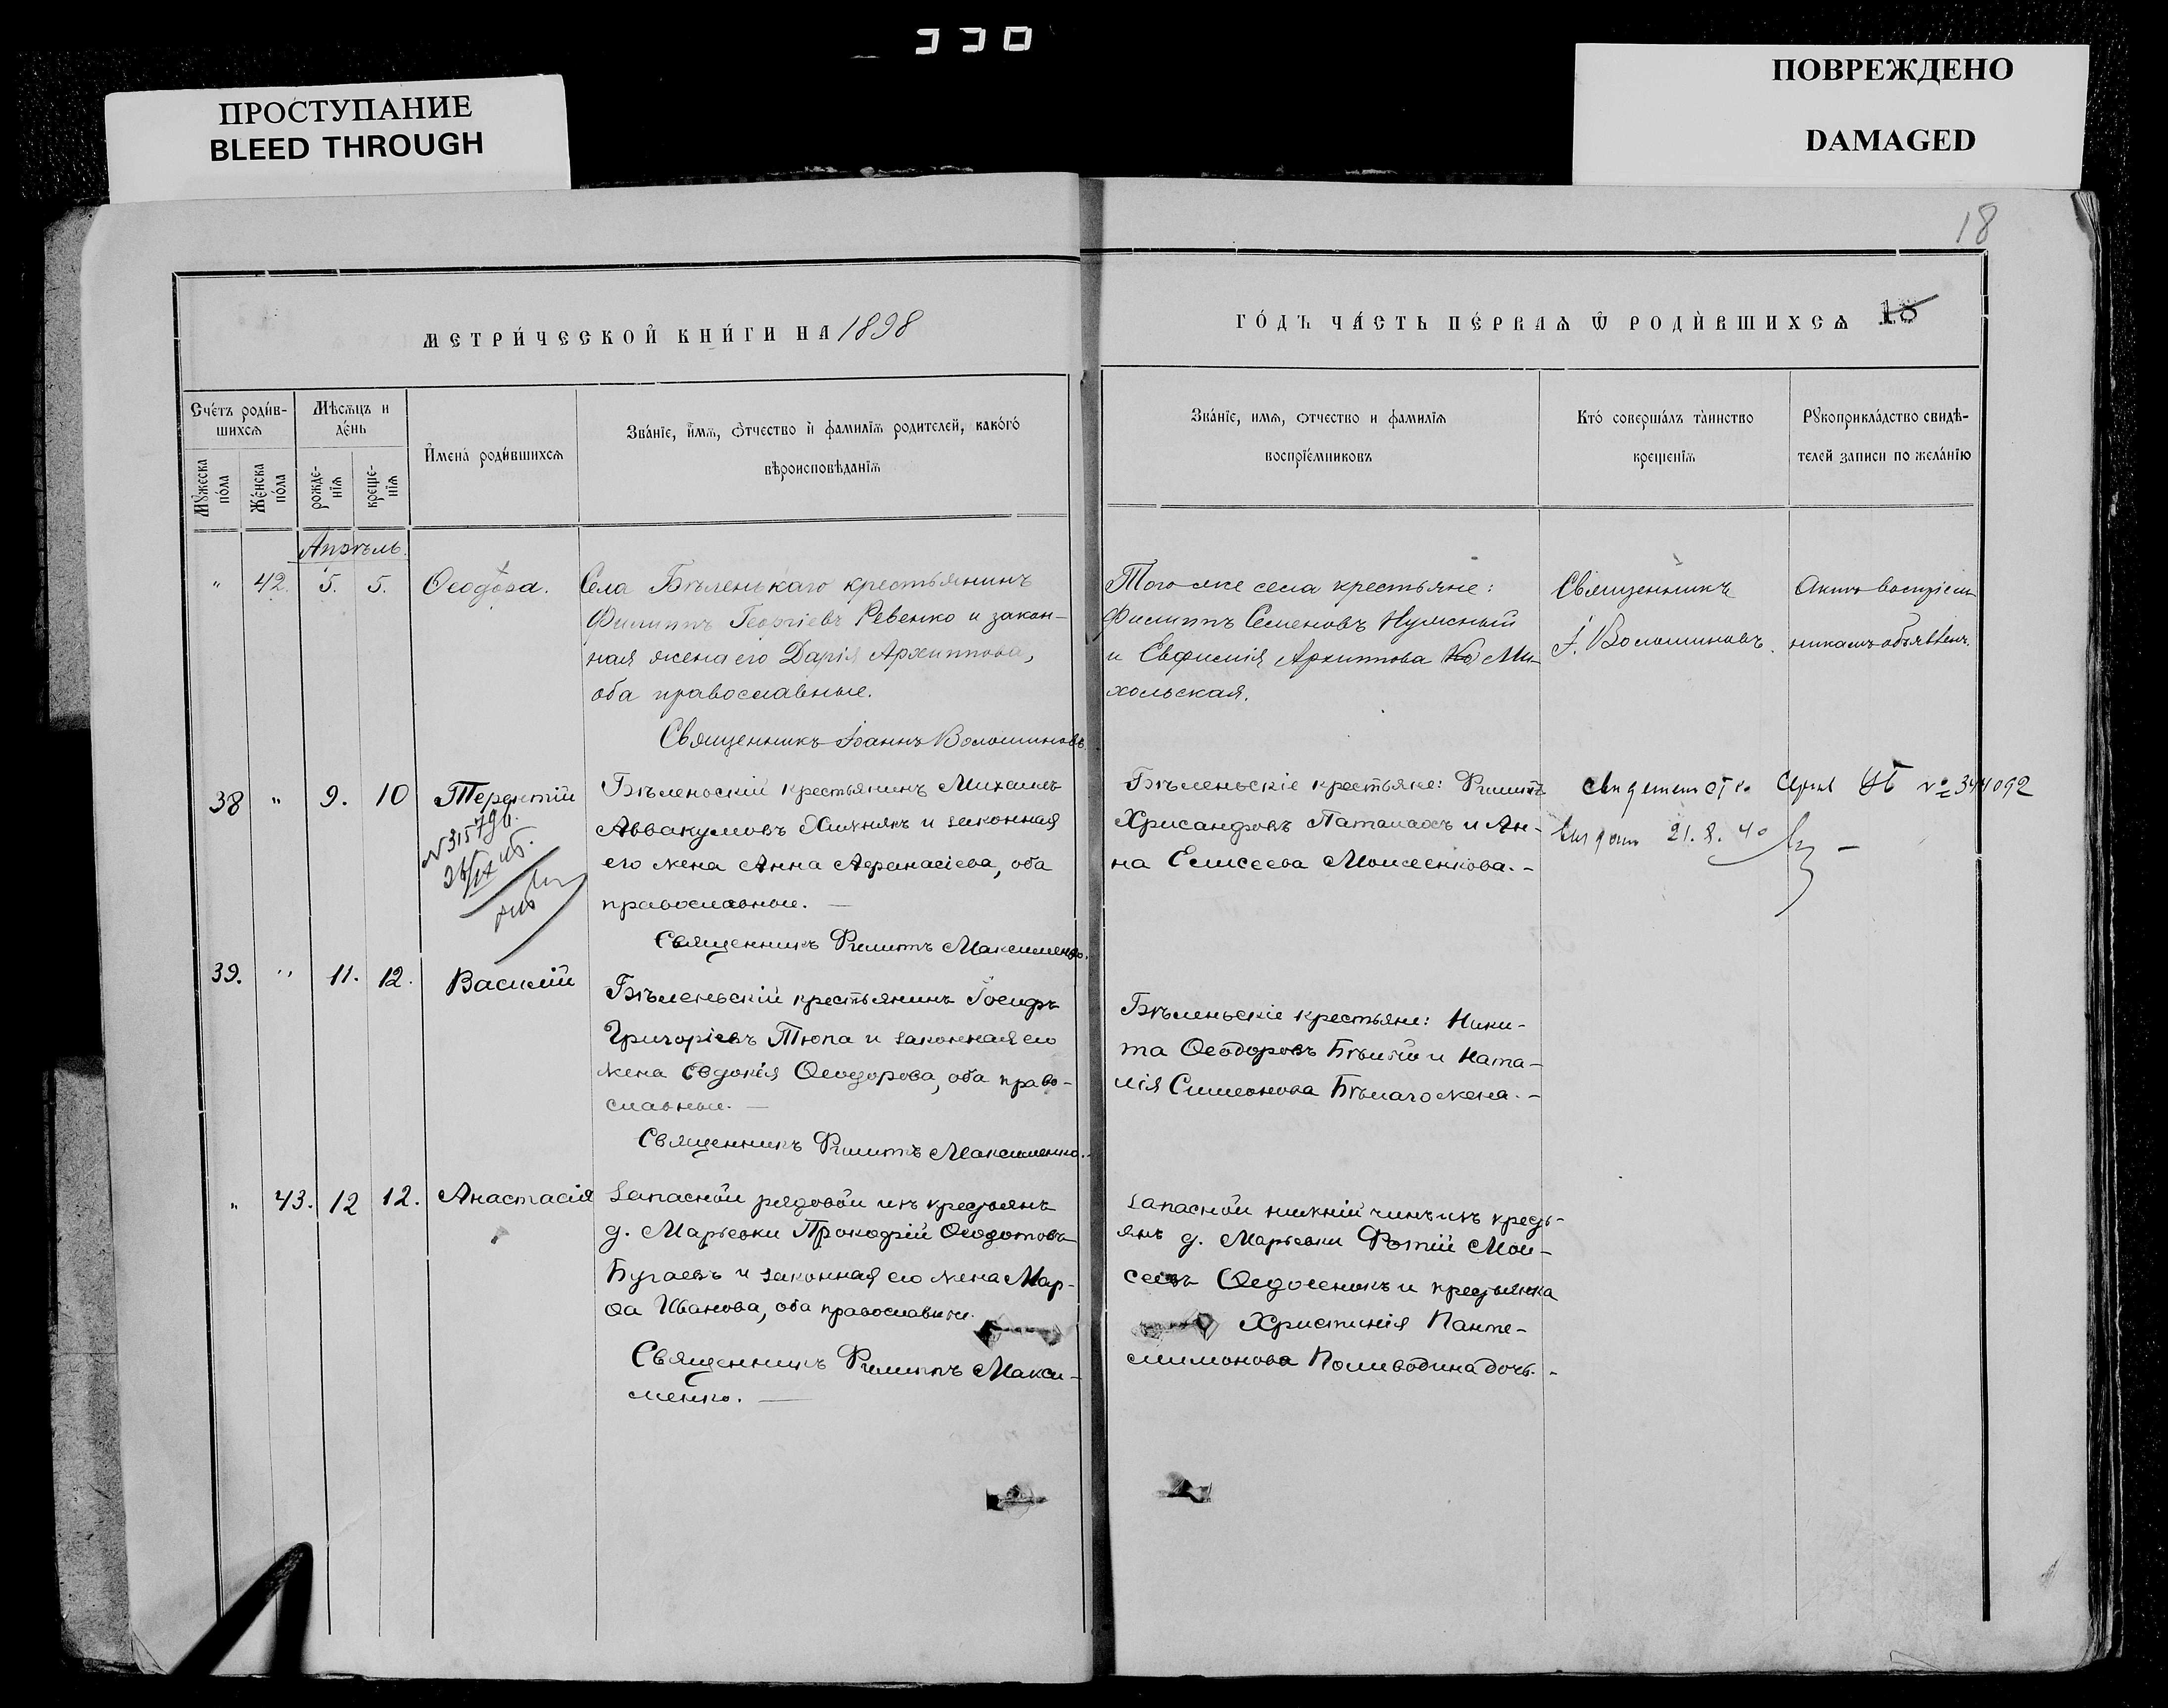 ПРОСТУПАНИЕ
BLEED THROUGH
ПОВРЕЖДЕНО
DAMAGED
18
МЕТРИ́ЧЕСКОЙ КНИ́ГИ НА 1898
ГО́ДЪ ЧА́СТЬ ПЕ́РВАѦ Ѿ РОДИ́ВШИХСѦ 18
Сче́тъ роди́в-
шихсѧ
Мѣсѧцъ и
де́нь
И҆мена̀ роди́вшихсѧ
Зва́нїе, и҆́мѧ, ѻ҆́тчество и҆ фамилїѧ родителей, како́гѡ
вѣроисповѣданїѧ
Мꙋжеска
по́ла
Же́нска
по́ла
рожде-
нїѧ
креще-
нїѧ
Зва́нїе, имѧ, ѻтчество и фамилїѧ
воспрїе́мниковъ
Кто̀ соверша́лъ та́инство
крещенїѧ
Рꙋкоприкла́дство свидѣ-
телей записи по жела́нїю
Апрѣль.
" 42. 5. 5. Ѳеодора. Села Бѣленькаго крестьянинъ
Филиппъ Георгіевъ Ревенко и закон-
ная жена его Дарія Архиппова,
оба православные.
Священникъ Іоаннъ Волошиновъ.
Того же села крестьяне:
Филиппъ Семеновъ Нужный
и Евфимія Архиппова Ми-
хольская.
Священникъ
І. Волошиновъ.
Актъ воспріем-
никамъ объявленъ.
38 " 9. 10 Терентій Бѣленьскій крестьянинъ Михаилъ
Аввакумовъ Хижнякъ и законная
его жена Анна Аѳанасіева, оба
православные. —
Священникъ Филиппъ Максименко.
N 315796.
Бѣленьскіе крестьяне: Филиппъ
Хрисанфовъ Паталахъ и Ан-
на Елисеева Моисеенкова. -
Серия № 344092
21. 8. 40
39. " 11. 12. Василій
Бѣленьскій крестьянинъ Іосифъ
Григоріевъ Тюпа и законная его
жена Евдокія Ѳеодорова, оба право-
славные. —
Священникъ Филиппъ Максименко.
Бѣленьскіе крестьяне: Ники-
та Ѳеодоровъ Бѣлый и Ната-
лія Симеонова Бѣлаго жена. -
" 43. 12 12. Анастасія Запасной рядовой изъ крестьянъ
д. Марьевки Прокофій Ѳеодотовъ
Бугаевъ и законная его жена Мар-
ѳа Иванова, оба православные.
Священникъ Филиппъ Макси-
менко. —
Запасной нижній чинъ изъ кресть-
янъ д. Марьевки Фотій Мои-
сеевъ Ѳедосенокъ и крестьянка
Христинія Панте-
леимонова Поливодина дочь. -